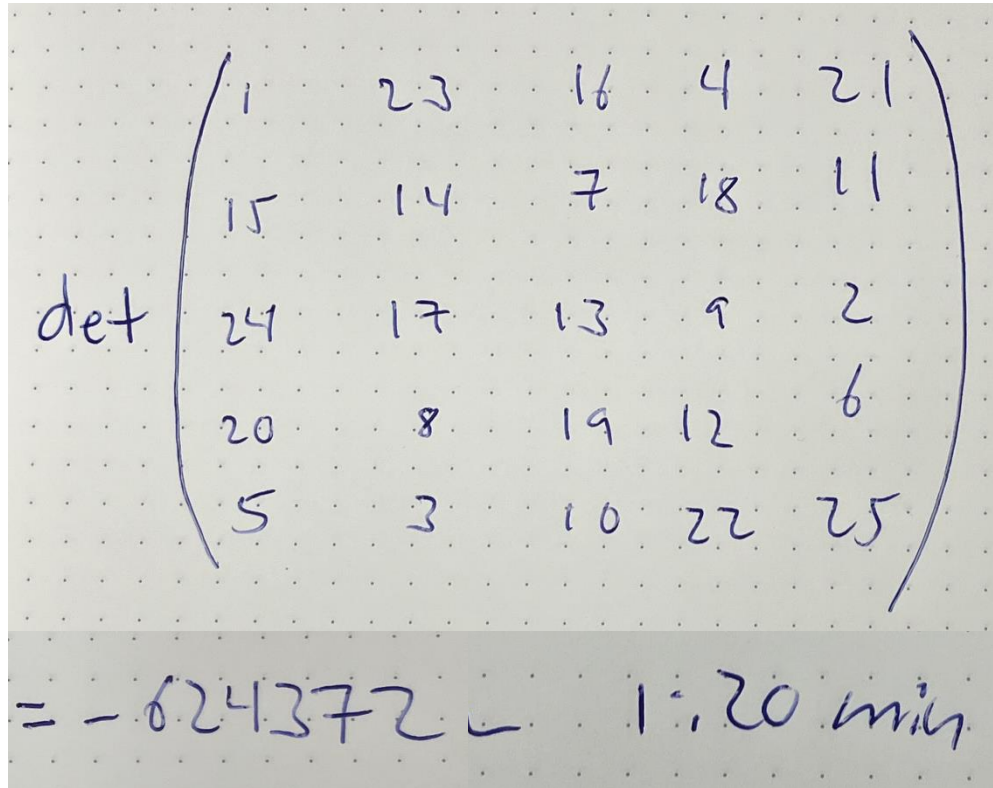 1 23 16 4 21
15 14 7 18 11
det 24 17 13 9 2
20 8 19 12 6
5 3 10 22 25
= -624372 1:20 min